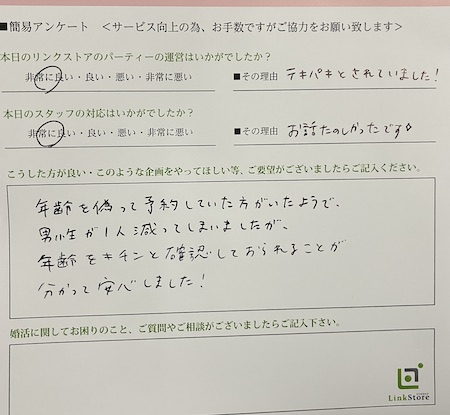 ■簡易アンケート ＜サービス向上の為、お手数ですがご協力をお願い致します＞
本日のリンクストアのパーティーの運営はいかがでしたか？
非常に良い・良い・悪い・非常に悪い ■その理由 テキパキとされていました!
本日のスタッフの対応はいかがでしたか？
非常に良い・良い・悪い・非常に悪い ■その理由 お話たのしかったです
こうした方が良い・このような企画をやってほしい等、ご要望がございましたらご記入ください。
年齢を偽って予約していた方がいたようで、
男性が1人減ってしまいましたが、
年齢をキチンと確認しておられることが
分かって安心しました!
婚活に関してお困りのこと、ご質問やご相談がございましたらご記入下さい。
LinkStore